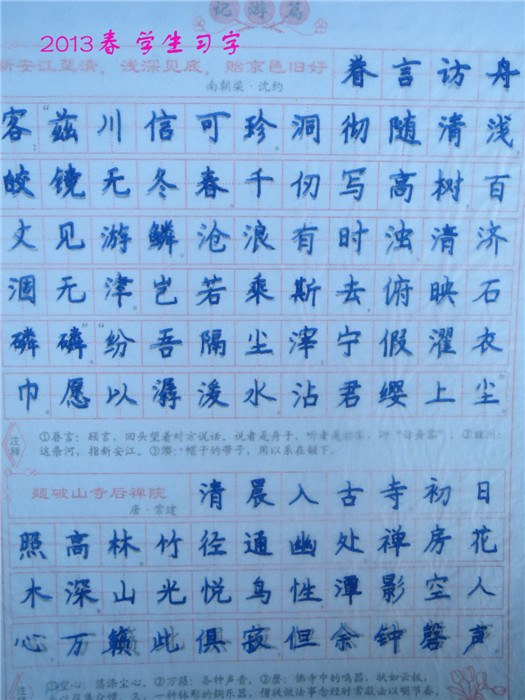 记游篇
2013春 学生习字
新安江至清，浅深见底，贻京邑旧好 眷言访舟
南朝梁·沈约
客，“兹川信可珍。洞彻随清浅，
皎镜无冬春。千仞写高树，百
丈见游鳞。沧浪有时浊，清济
涸无津。岂若乘斯去，俯映石
磷磷。”“纷吾隔尘滓，宁假濯衣
巾。愿以潺湲水，沾君缨上尘。”
注释
①眷言：顾言，回头望着对方说话。说者是舟子，听者是
这条河，指新安江。③缨：帽子的带子，用以系在颔下。
题破山寺后禅院 清晨入古寺，初日
唐·常建
照高林。竹径通幽处，禅房花
木深。山光悦鸟性，潭影空人
心。万籁此俱寂，但余钟磬声。
①空心：荡涤尘心。②万籁：各种声音。③磬：佛寺中的鸣器，状如云板，